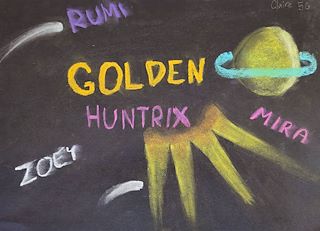 Claire 5G
RUMI
GOLDEN
HUNTRIX
MIRA
ZOEY